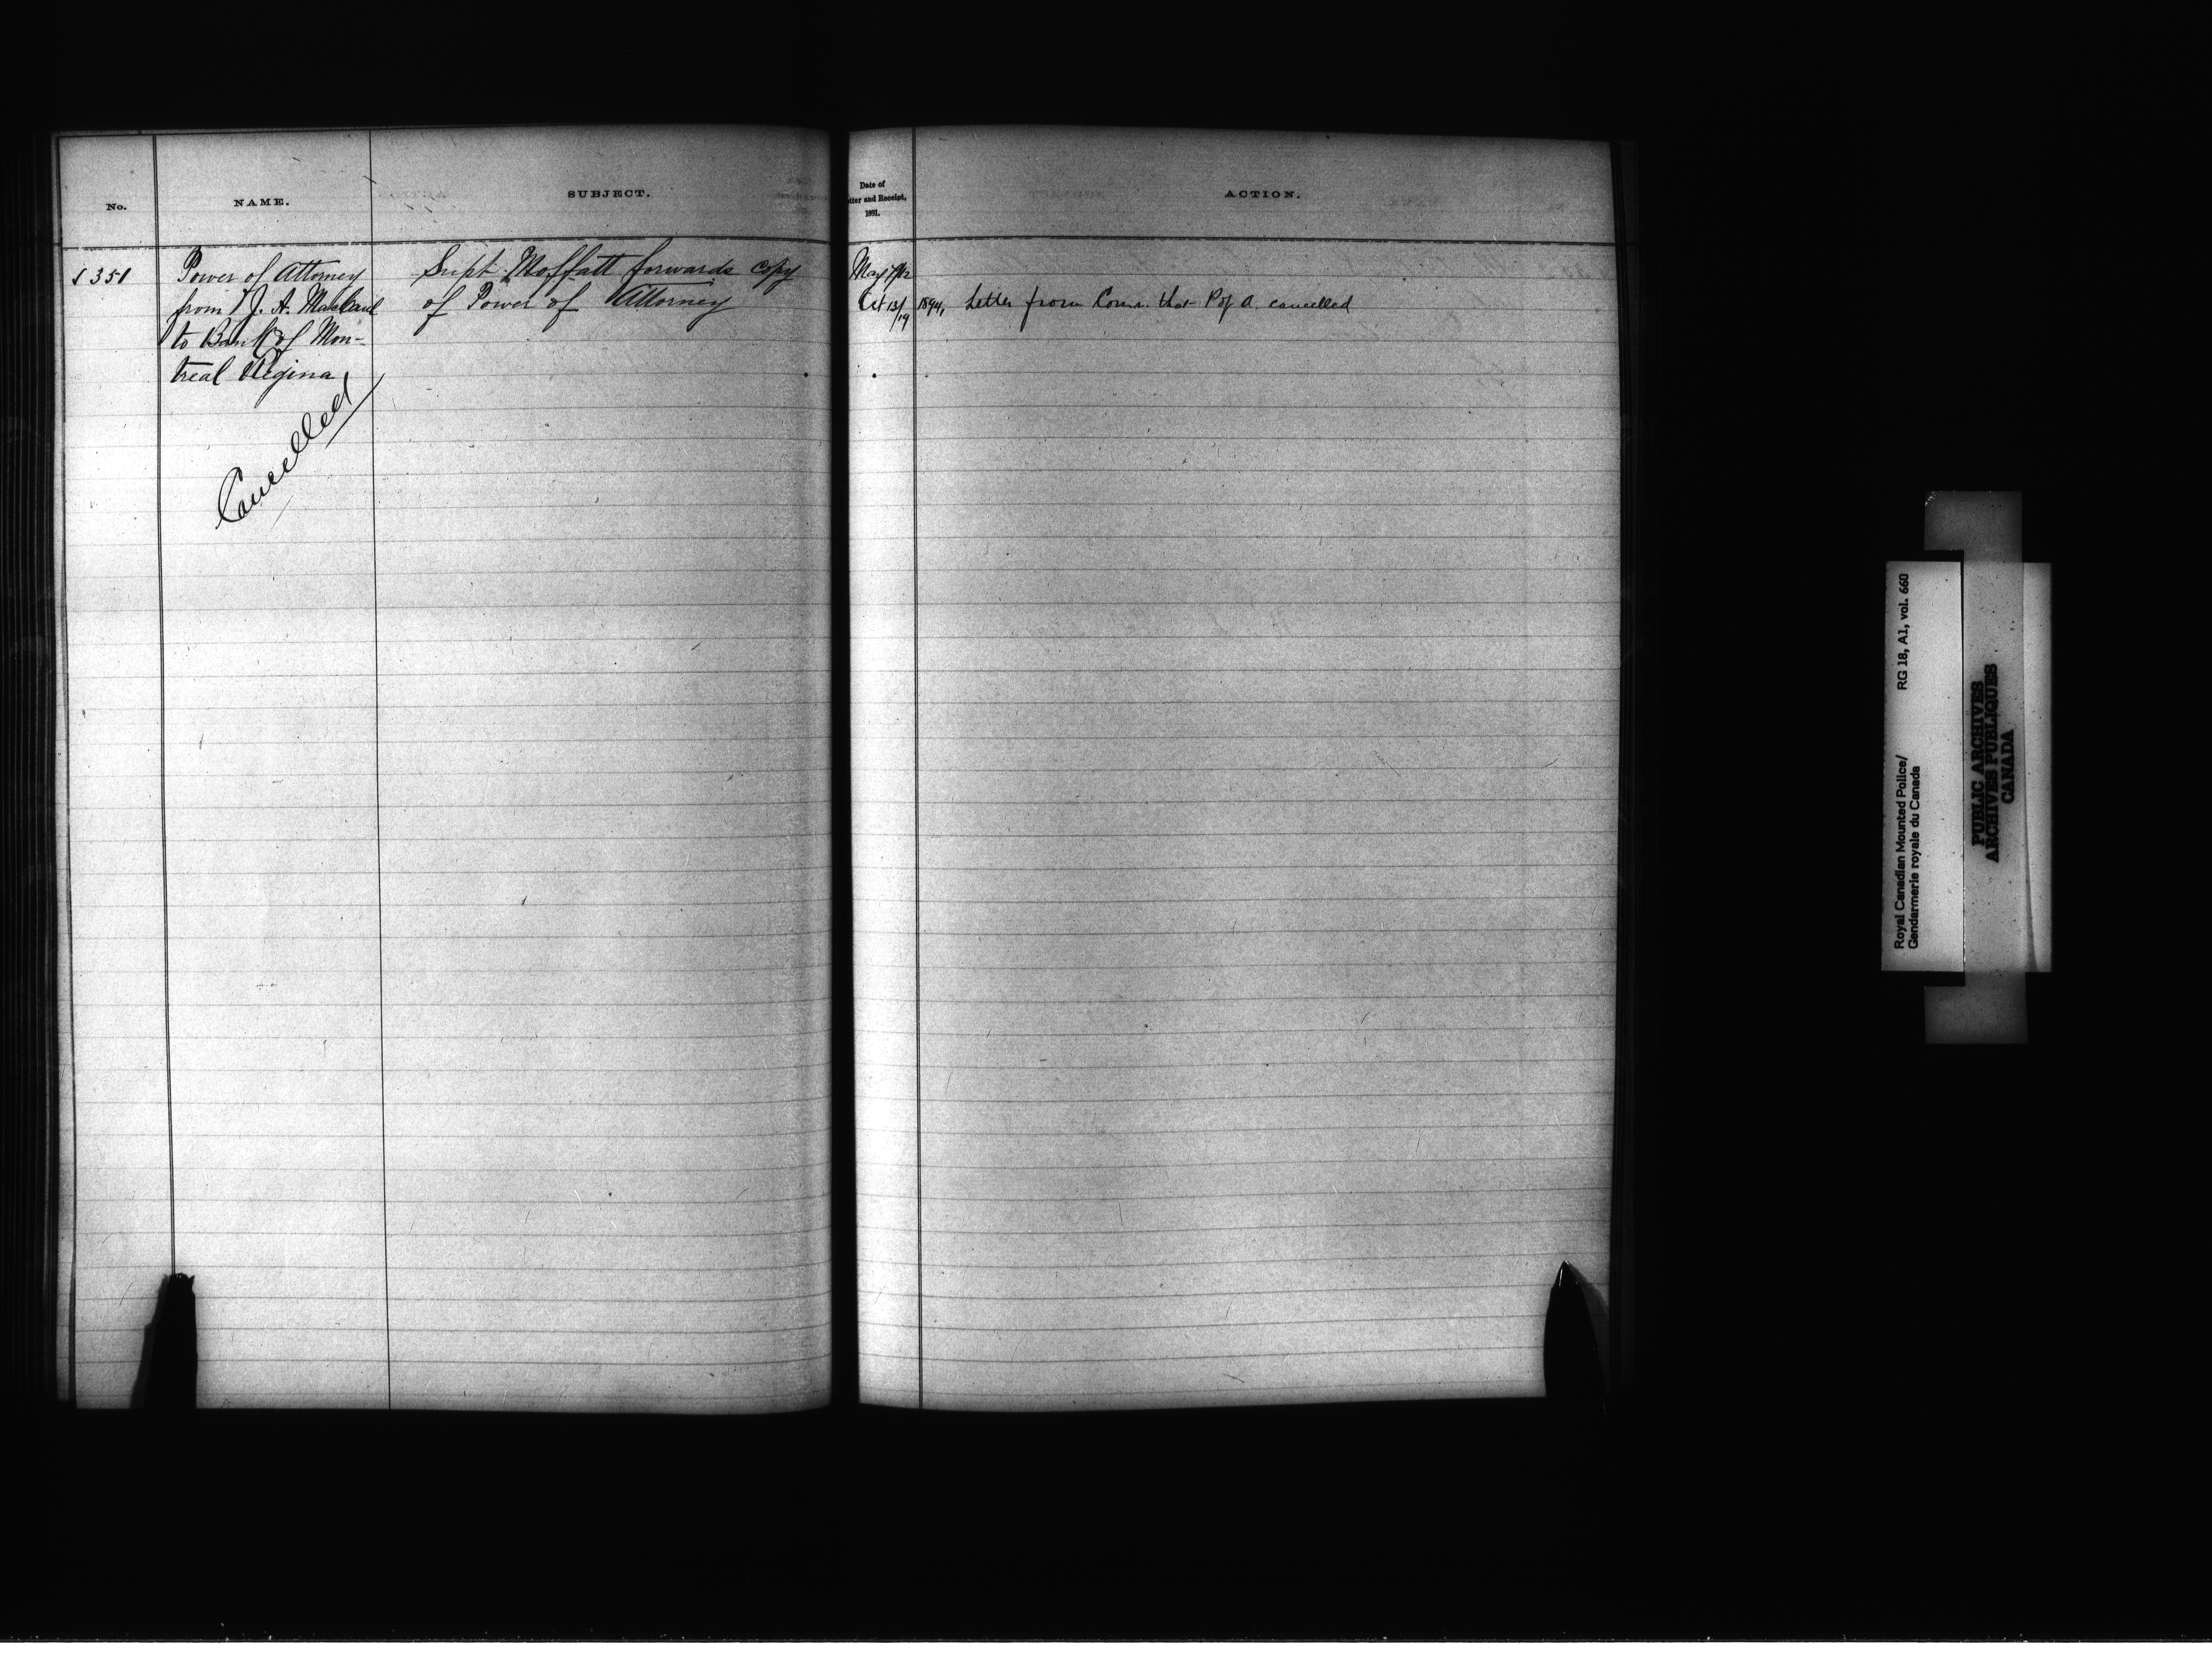 No.
NAME.
SUBJECT.
Date of
tter and Receipt,
1891.
ACTION.
351
Power of Attorney
from J. A.
to Bank of Mon-
treal Regina
Cancelled
Supt. Moffatt forwards copy
of Power of Attorney
May
Oct 13/19 1894, Letter from Comr. that P of A. cancelled
Royal Canadian Mounted Police/
Gendarmerie royale du Canada
RG 18, A1, vol. 660
PUBLIC ARCHIVES
ARCHIVES PUBLIQUES
CANADA